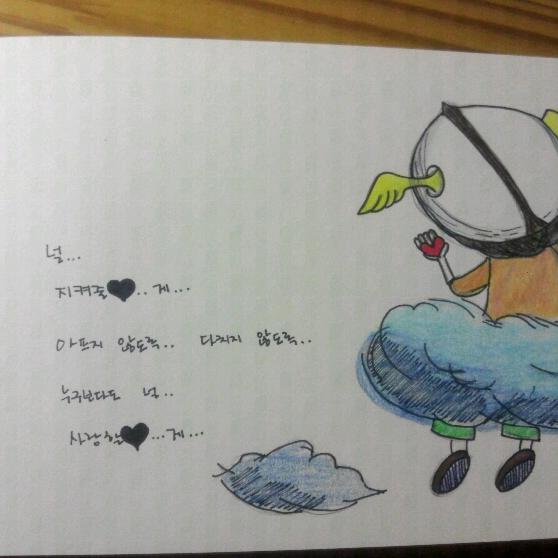 널...
지켜줄♥..게...
아프지 않도록.. 다치지 않도록..
누구보다도 널..
사랑할♥...게...